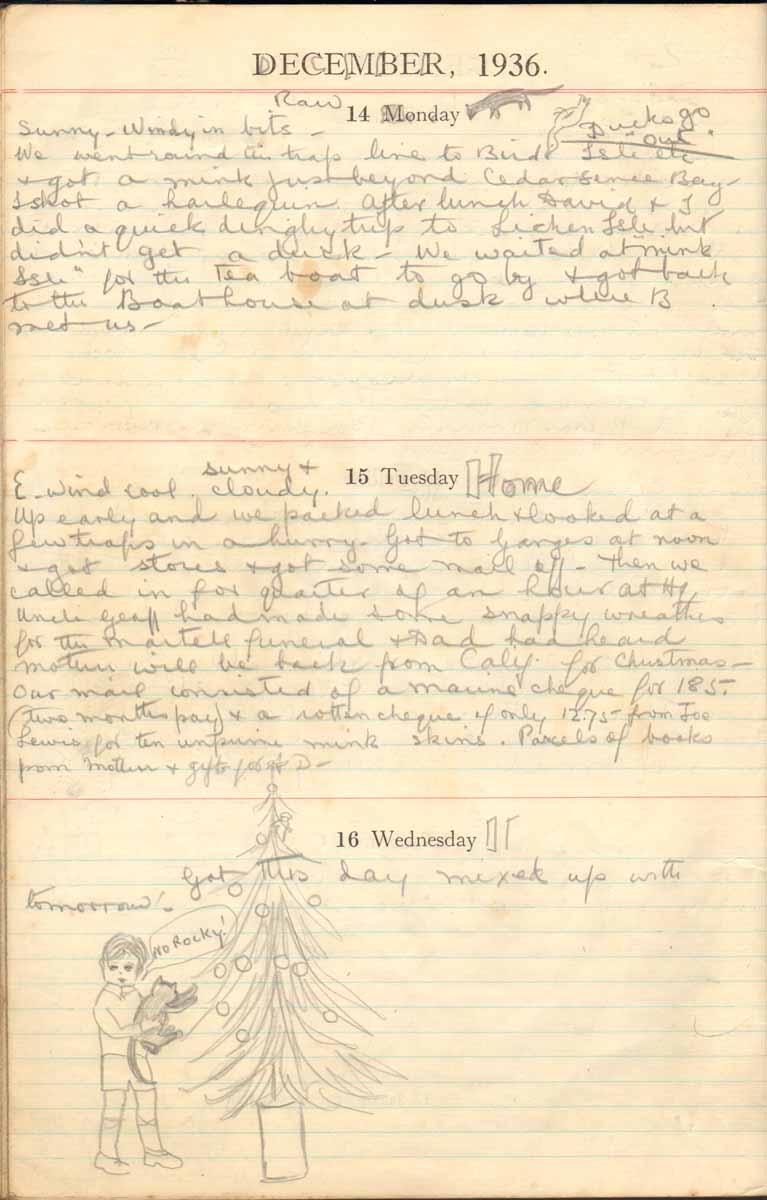 DECEMBER, 1936.
Raw
14 Monday
Ducks go
"out"
Sunny - Windy in bits -
We went round the trap line to Birds Isle etc
& got a mink just beyond Cedar Bay -
I shot a harlequin. After lunch David & I
did a quick dinghy trip to Lichen Isle but
didn't get a duck - We waited at "mink
Isle" for the Tea boat to go by & got back
to the Boathouse at dusk where B
met us -
15 Tuesday Home
E. wind cool. sunny &
cloudy.
Up early and we packed lunch & looked at a
few traps in a hurry. Got to Ganges at noon
& got stores & got some mail off - Then we
called in for quarter of an hour at
Uncle Geoff had made some snappy wreaths
for the Martell funeral & Dad had heard
mother will be back from Caly. for Christmas -
Our mail consisted of a marine cheque for 185.-
(two months pay) & a rotten cheque of only 12.75 from Joe
Lewis for ten unprime mink skins. Parcels of books
from Mother & gifts for D -
16 Wednesday
Got this day mixed up with
tomorrow!
No Rocky!